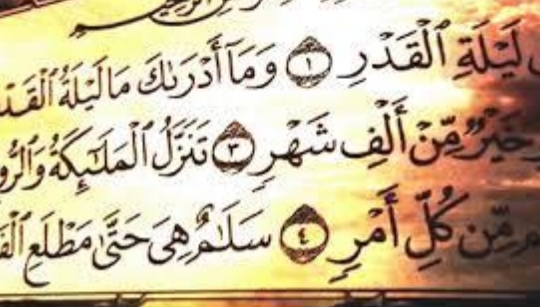 لَيْلَةِ ٱلْقَدْرِ ١ وَمَآ أَدْرَىٰكَ مَا لَيْلَةُ ٱلْقَدْ
خَيْرٌ مِّنْ أَلْفِ شَهْرٍ ٣ تَنَزَّلُ ٱلْمَلَـٰٓئِكَةُ وَٱلرُّو
مِّن كُلِّ أَمْرٍ ٤ سَلَـٰمٌ هِىَ حَتَّىٰ مَطْلَعِ ٱلْفَ